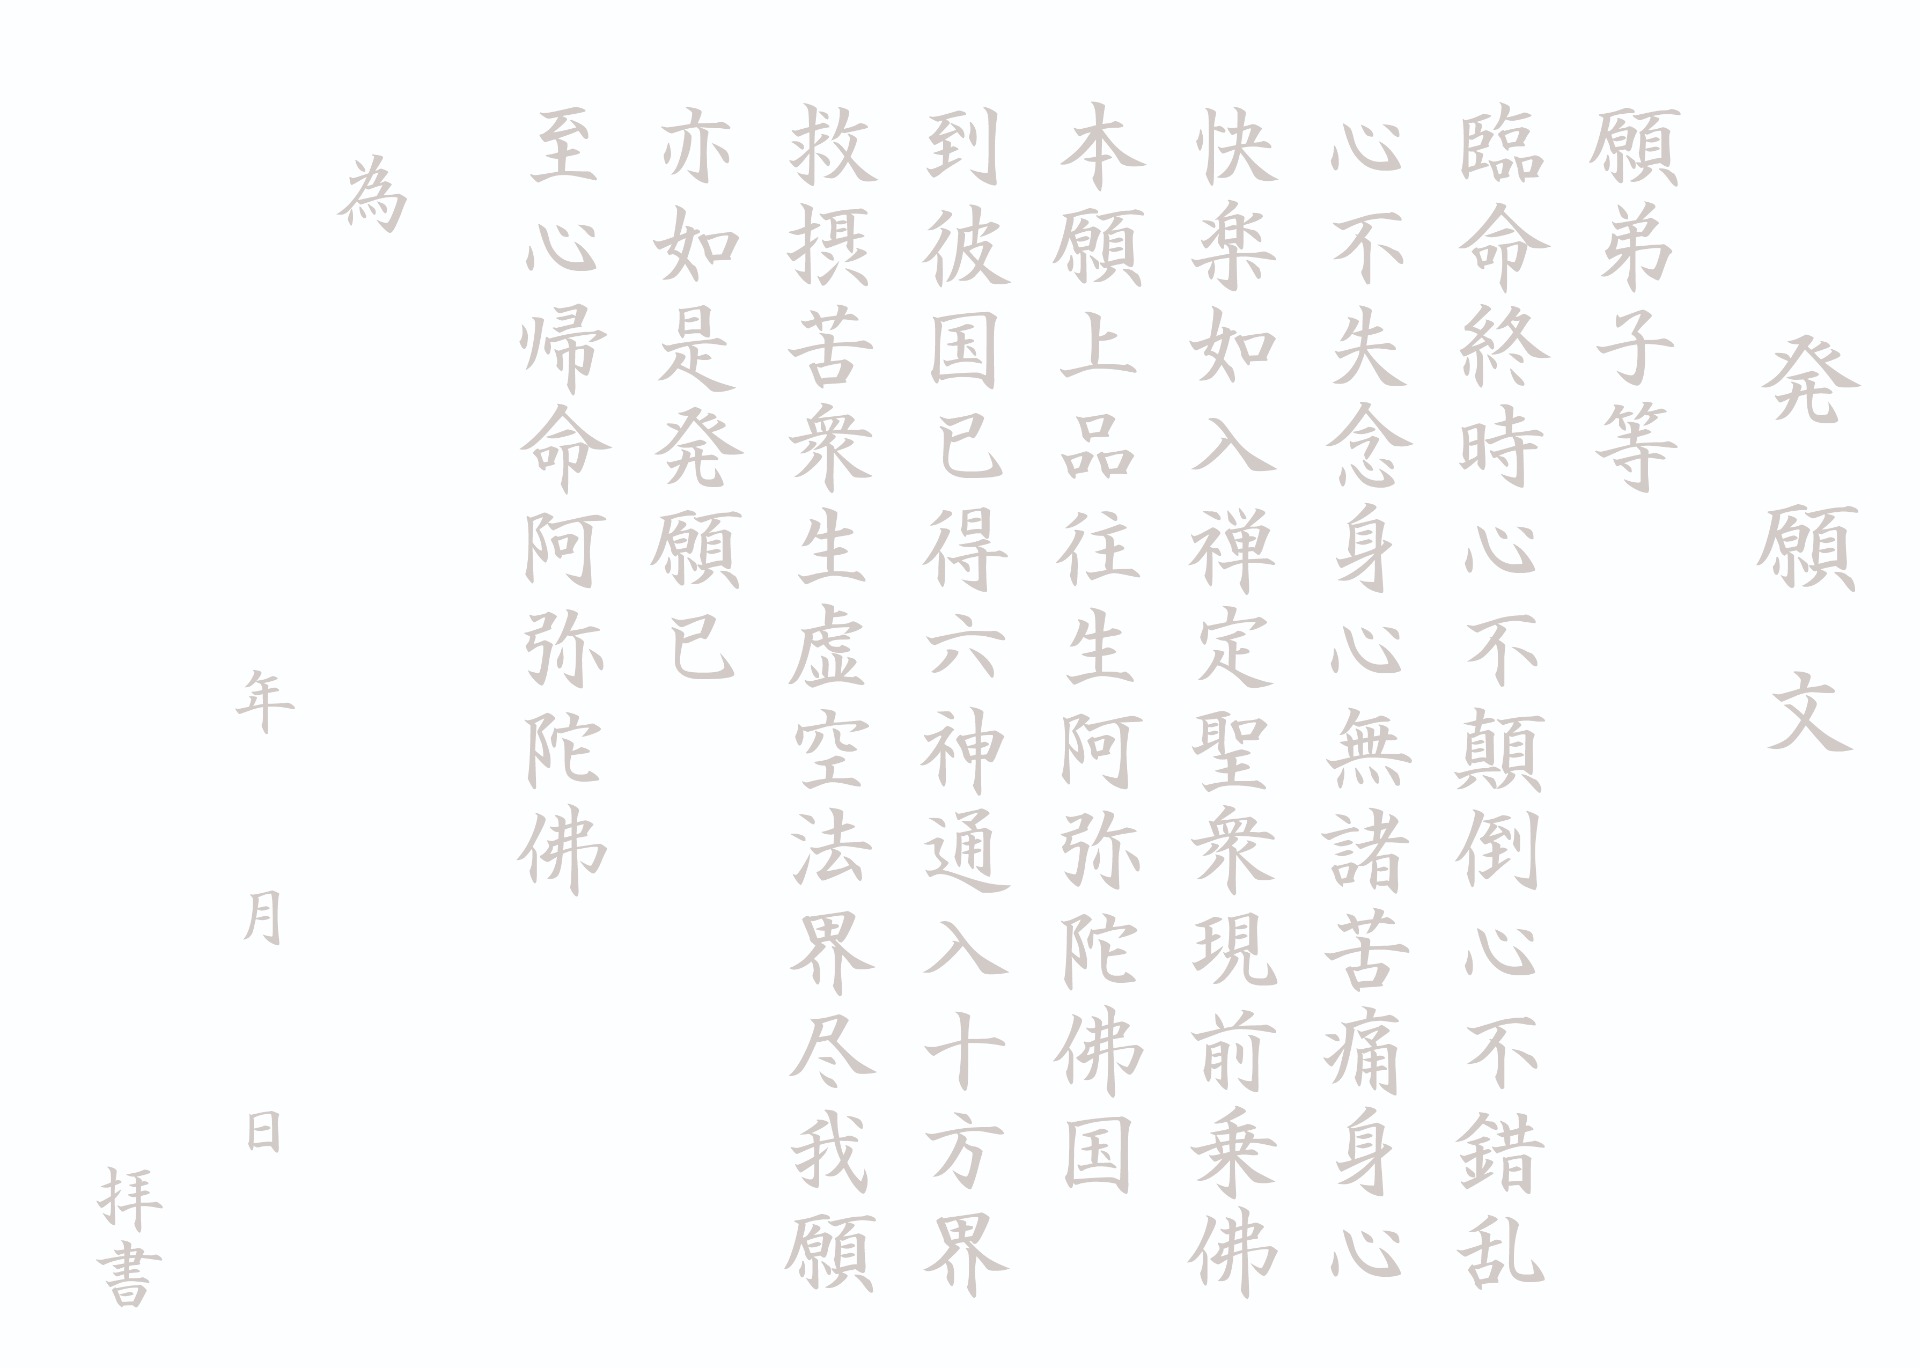 発願文
願弟子等
臨命終時心不顛倒心不錯乱
心不失念身心無諸苦痛身心
快楽如入禅定聖衆現前乗佛
本願上品往生阿弥陀佛国
到彼国已得六神通入十方界
救摂苦衆生虚空法界尽我願
亦如是発願已
至心帰命阿弥陀佛
為
年月日
拝書